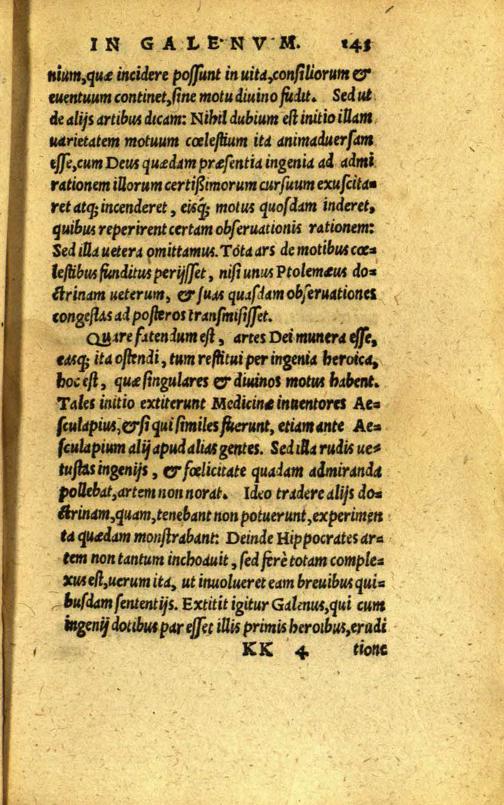 IN GALENVM. 145
nium,quæ incidere poſſunt in uita,conſiliorum &
euentuum continet,ſine motu diuino fudit. Sed ut
de alijs artibus dicam: Nihil dubium eſt initio illam
uarietatem motuum cœleſtium ita animaduerſam
eſſe,cum Deus quædam præſentia ingenia ad admi
rationem illorum certißimorum curſuum exuſcita=
ret atq; incenderet, eisq́; motus quoſdam inderet,
quibus reperirent certam obſeruationis rationem:
Sed illa uetera omittamus. Tota ars de motibus cœ=
leſtibus funditus perijſſet, niſi unus Ptolemæus do=
ctrinam ueterum, & ſuas quaſdam obſeruationes
congeſtas ad poſteros tranſmiſiſſet.
Quare fatendum eſt, artes Dei munera eſſe,
easq́; ita oſtendi, tum reſtitui per ingenia heroica,
hoc eſt, quæ ſingulares & diuinos motus habent.
Tales initio extiterunt Medicinæ inuentores Ae=
ſculapius,& ſi qui ſimiles fuerunt, etiam ante Ae=
ſculapium alij apud alias gentes. Sed illa rudis ue=
tuſtas ingenijs, & fœlicitate quadam admiranda
pollebat,artem non norat. Ideo tradere alijs do=
ctrinam,quam,tenebant non potuerunt,experimen
ta quædam monſtrabant: Deinde Hippocrates ar=
tem non tantum inchoauit, ſed ferè totam comple=
xus eſt,uerum ita, ut inuolueret eam breuibus qui=
buſdam ſententijs. Extitit igitur Galenus,qui cum
ingenij dotibus par eſſet illis primis heroibus,erudi
KK 4 tione